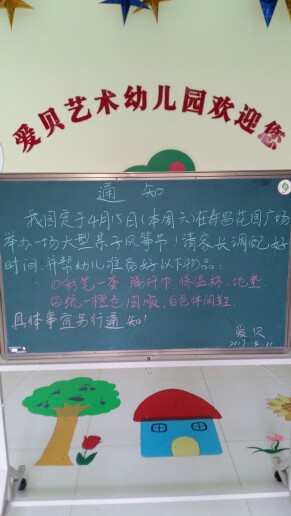 爱贝艺术幼儿园欢迎您
通 知
我园定于4月15日(本周六)在寿昌花园广场
举办一场大型亲子风筝节!请家长调配好
时间,并帮幼儿准备好以下物品:
①彩笔一套、隔汗巾、保温杯、地垫
②统一橙色园服、白色休闲鞋.
具体事宜另行通知!
爱贝
2017.4.11